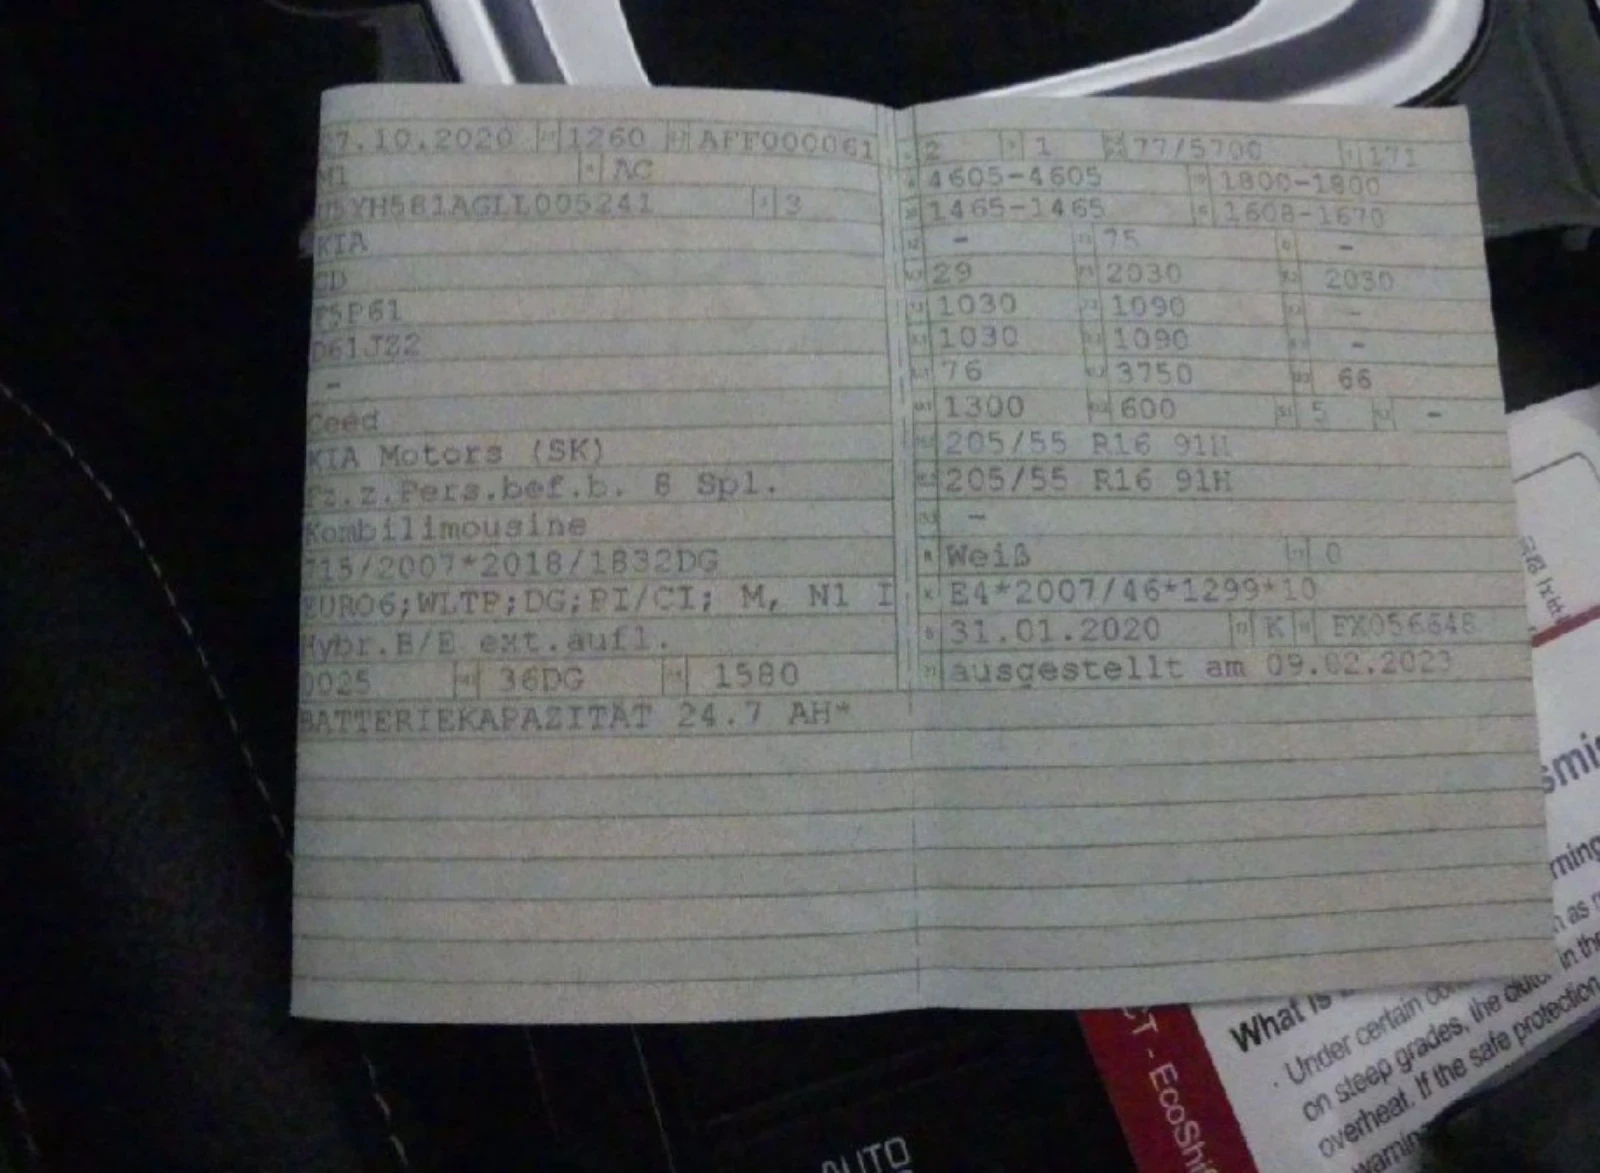 27.10.2020 1260 AFF000061
M1 AC
U5YH581AGLL005241 3
KIA
CD
F5P61
D61JZ2
-
Ceed
KIA Motors (SK)
Fz.z.Pers.bef.b. 8 Spl.
Kombilimousine
715/2007*2018/1832DG
EURO6;WLTP;DG;PI/CI; M, N1 I
Hybr.B/E ext.aufl.
0025 36DG 1580
BATTERIEKAPAZITÄT 24.7 AH*
2 1 77/5700 171
4605-4605 1800-1800
1465-1465 1608-1670
- 75 -
29 2030 2030
1030 1090 -
1030 1090 -
76 3750 66
1300 600 5 -
205/55 R16 91H
205/55 R16 91H
-
Weiß 0
E4*2007/46*1299*10
31.01.2020 K FX056648
ausgestellt am 09.02.2023
What is
· Under certain
on steep grades, the clutch in the
overheat. If the safe protection
warning
CT - EcoShif
AUTO